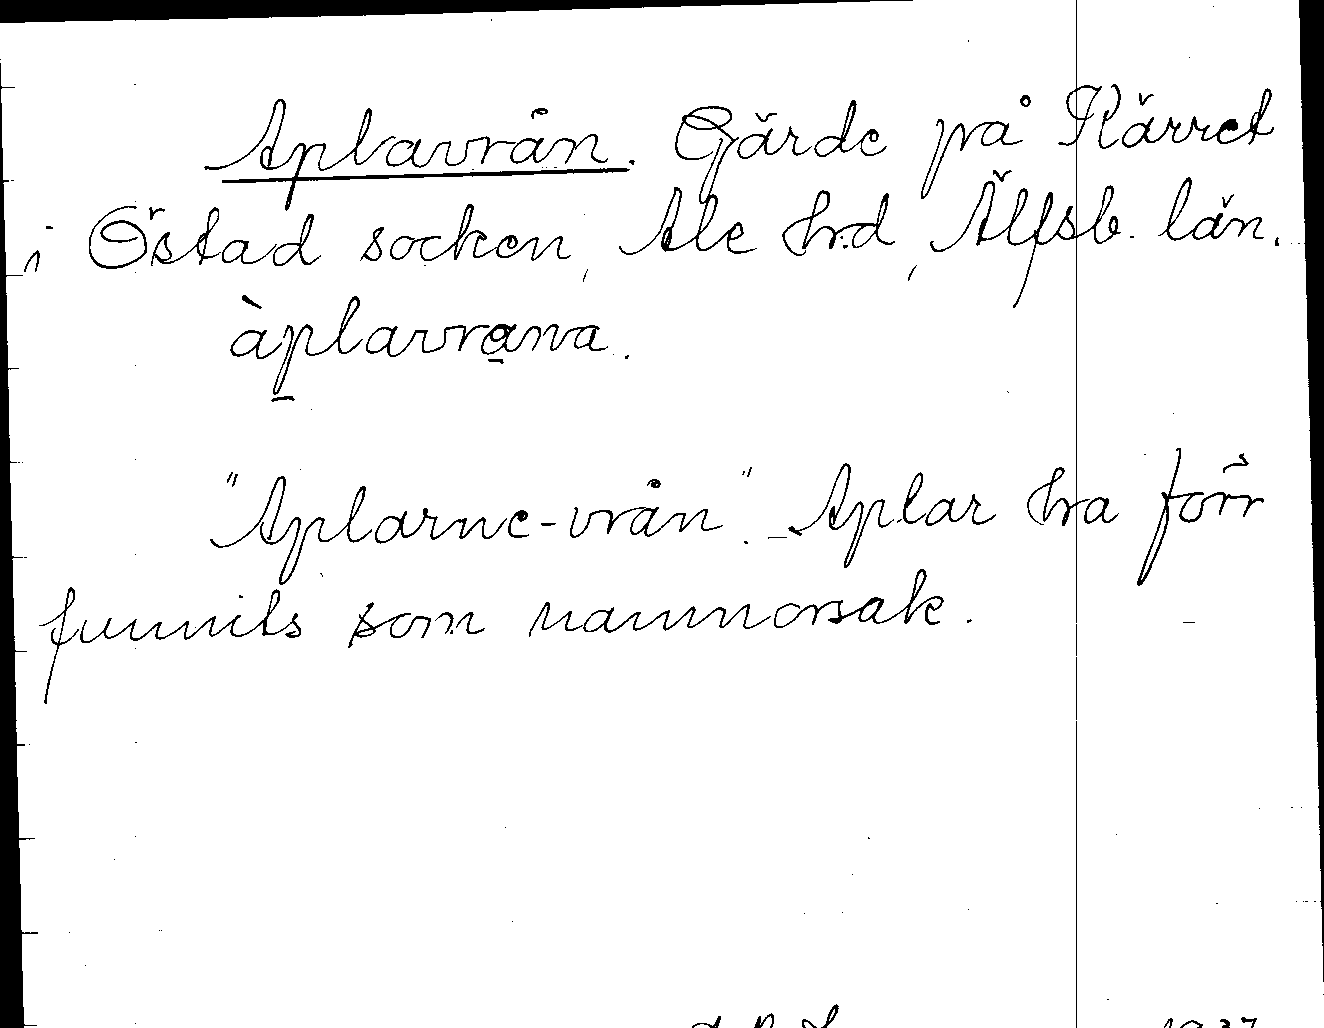 Aplavrån. Gärde på Kärret
i Östad socken, Ale hrd, Älfsb. län.
àplavrana.
"Aplarne-vrån". Aplar ha förr
funnits som namnorsak.
1937